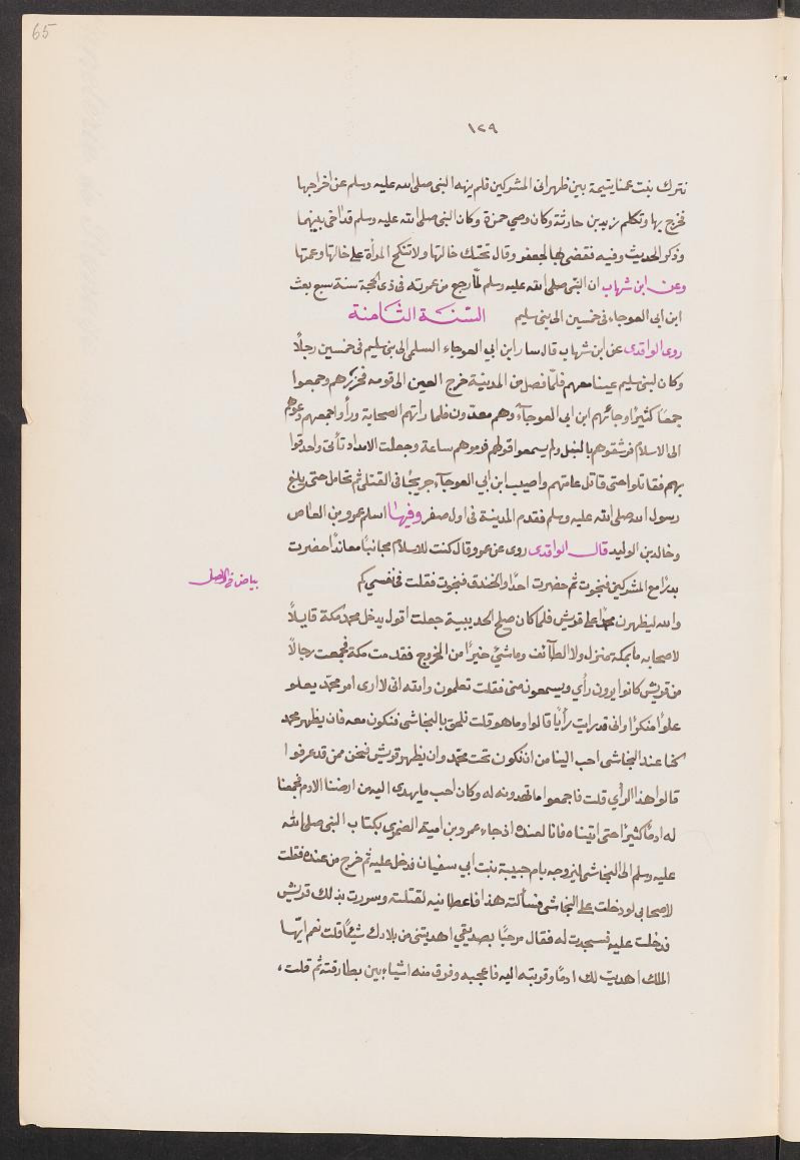 65
١٢٩
نترك بنت عمنا يتيمة بين ظهرانى المشركين فلم ينهه النبى صلى الله عليه وسلم عن اخراجها
فخرج بها وتكلم زيد بن حارثة وكان وصي حمزة وكان النبى صلى الله عليه وسلم قد اخى بينهما
وذكر الحديث وفيه فقضى لها لجعفر وقال تحتك خالتها ولا تنكح المرأة على خالتها وعمتها
وعن ابن شهاب ان النبى صلى الله عليه وسلم لما رجع من عمرته فى ذى الحجة سنة سبع بعث
ابن ابى العوجاء فى خمسين الى بنى سليم السّنة الثامنة
روى الواقدى عن ابن شهاب قال سار ابن ابي العوجاء السلمى الى بنى سليم فى خمسين رجلاً
وكان لبنى سليم عينا معهم فلمّا فصل من المدينة خرج العين الى قومه فحزرهم وجمعوا
جمعًا كثيرًا وجائهم ابن ابى العوجآء وهم معدّون فلما رأتهم الصحابة ورأوا جمعهم دعوهم
الى الاسلام فرشقوهم بالنبل ولم يسمعوا قولهم فرموهم ساعة وجعلت الامداد تأتى واحدقوا
بهم فقاتلوا حتى قاتل عامتهم واصيب ابن ابي العوجآء جريحًا فى القتلى ثم تحامل حتى بلغ
رسول الله صلى الله عليه وسلم فقدم المدينة فى اول صفر وفيها اسلم عمرو بن العاص
وخالد بن الوليد قال الواقدى روى عن عمرو قال كنت للاسلام مجانبًا معاندًا حضرت
بدرًا مع المشركين فنجوت ثم حضرت احدًا والخندق فنجوت فقلت فى نفسي كم
بياض فى الاصل
والله ليظهرن محمدًا على قريش فلما كان صلح الحديبية جعلت اقول يدخل محمد مكة قابلاً
لاصحابه ما بمكة بمنزل ولا الطائف وما شئ خيرًا من الخروج فقدمت مكة فجمعت رجالاً
من قريش كانوا يرون رأي ويسمعونه منى فقلت تعلمون والله انى لا ارى امر محمّد يعلو
علوًا منكرًا وانى قد رايت رأيًا قالوا وما هو قلت نلحق بالنجاشى فنكون معه فان يظهر محمد
كنا عند النجاشى احب الينا من ان نكون تحت محمّد وان يظهر قريش فنحن ممن قد عرفوا
قالوا هذا الرأي قلت فاجمعوا ما تهدونه له وكان احب ما يهدى اليه من ارضنا الادم فجمعنا
له ادمًا كثيرًا حتى اتيناه فانا لعنده اذ جاء عمرو بن امية الضمرى بكتاب النبى صلى الله
عليه وسلم الى النجاشى ليزوجه بام حبيبة بنت ابى سفيان فدخل عليه ثم خرج من عنده فقلت
لاصحابى لو دخلت على النجاشى فسألته هذا فاعطانيه لقتلته وسررت بذلك قريش
فدخلت عليه فسجدت له فقال مرحبًا بصديقي اهديتنى من بلادك شيئًا قلت نعم ايّها
الملك اهديت لك ادمًا وقربته اليه فاعجبه وفرق منه اشياء بين بطارقته ثم قلت،